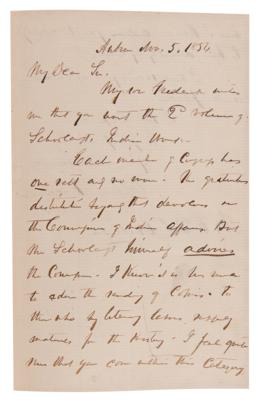 Auburn Nov. 5, 1856
My Dear Sir.
My son Frederick writes
me that you want the 2d volume of
Schoolcraft's Indian Work.
Each member of Congress has
one sett and no more. The gratuitous
distribution beyond that devolves on
the Commissioner of Indian Affairs. But
Mr Schoolcraft himself advises
the Commissioner. I know it is his
to the sending of Copies to
those who by literary labors supply
materials for the History. I feel quite
sure that you come within this Category